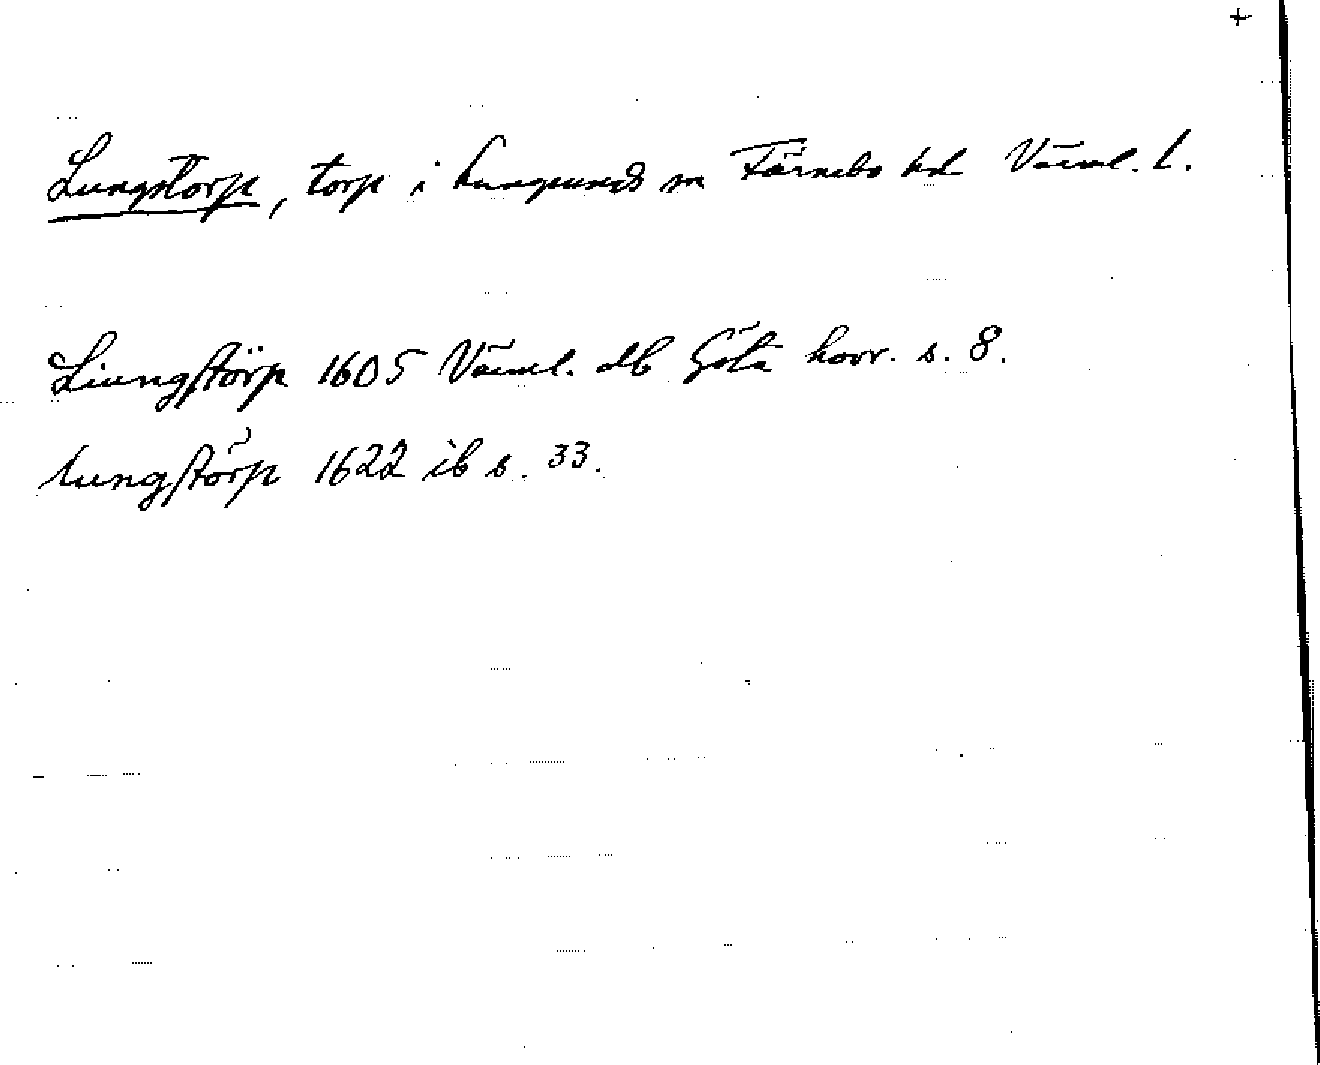 +
Lungstorp, torp i Lungsunds sn Färnebo hd Värml. l.
Liungstörp 1605 Värml. db Göta hovr. s. 8.
Lungstörp 1622 ib s. 33.